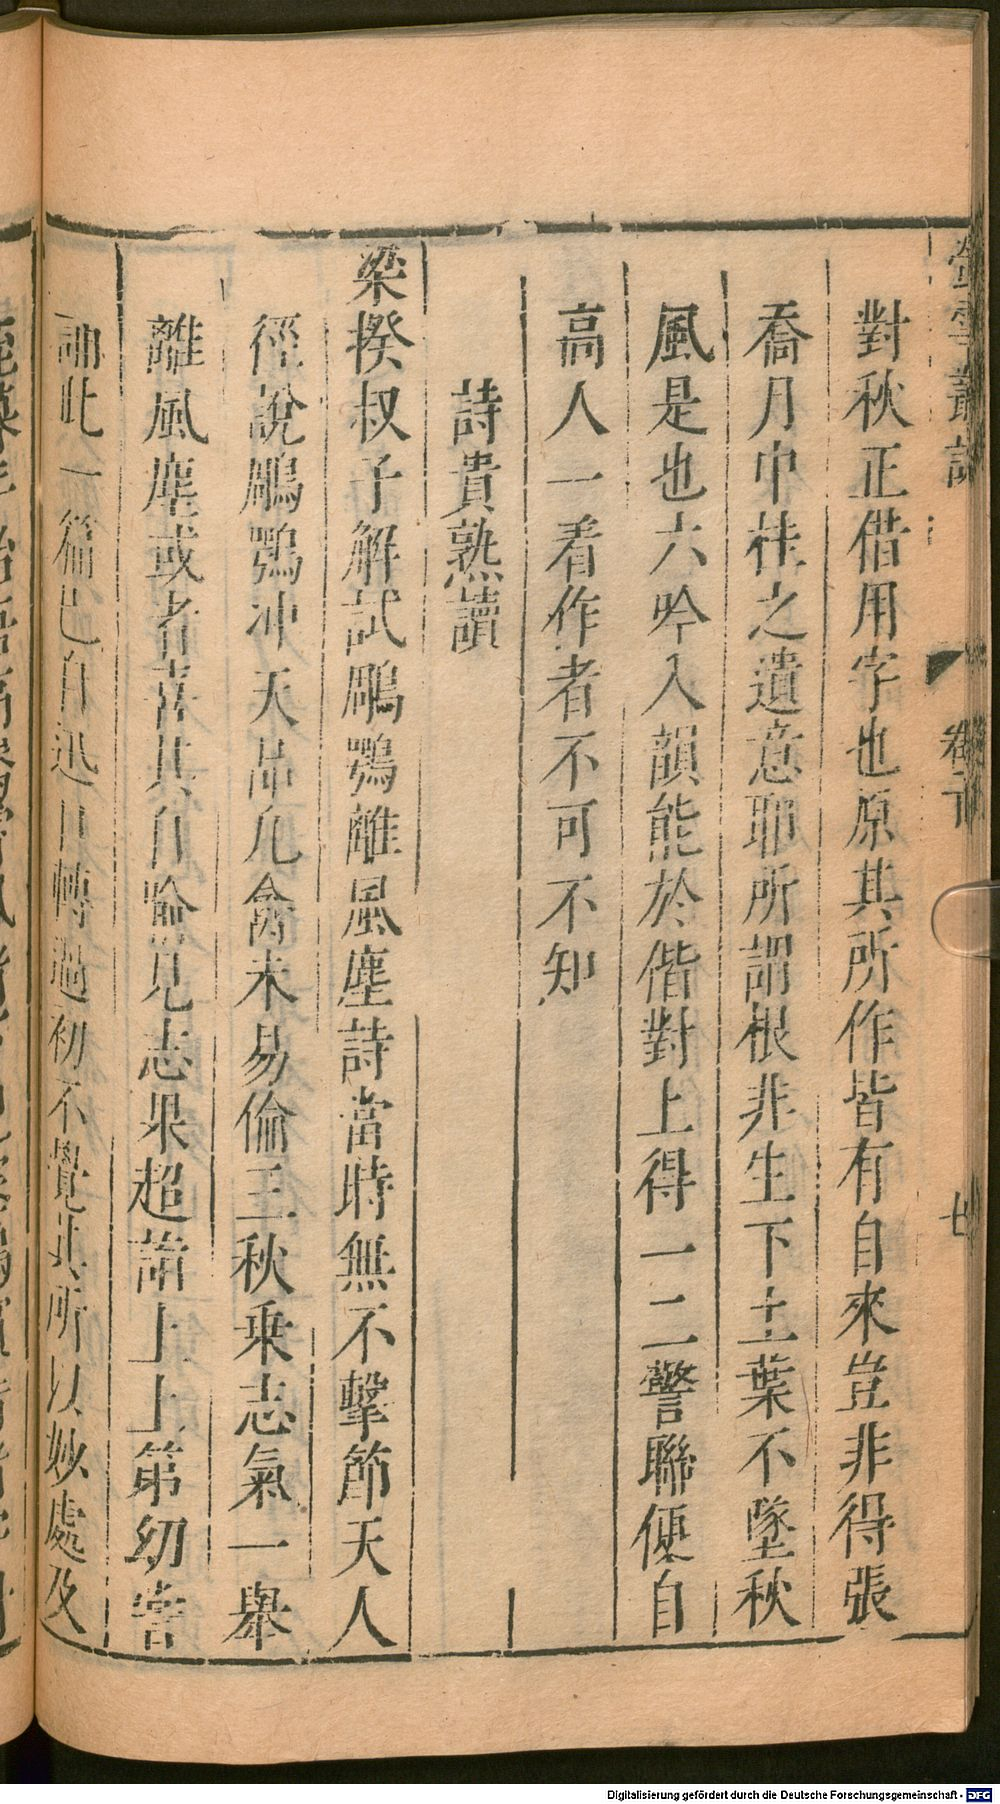 螢雪叢說 卷下 七
對秋正借用字也原其所作皆有自來豈非得張
喬月中桂之遺意耶所謂根非生下土葉不墜秋
風是也六吟入韻能於偕對上得一二警聯便自
高人一看作者不可不知
詩貴熟讀
梁揆叔子解試鵰鶚離風塵詩當時無不擊節天人
徑說鵰鶚冲天品凡禽未易倫三秋乗志氣一舉
離風塵或者喜其自喻見志果超詣上上第幼嘗
誦此一篇已自迅口轉過初不覺其所以妙處及
Digitalisierung gefördert durch die Deutsche Forschungsgemeinschaft - DFG